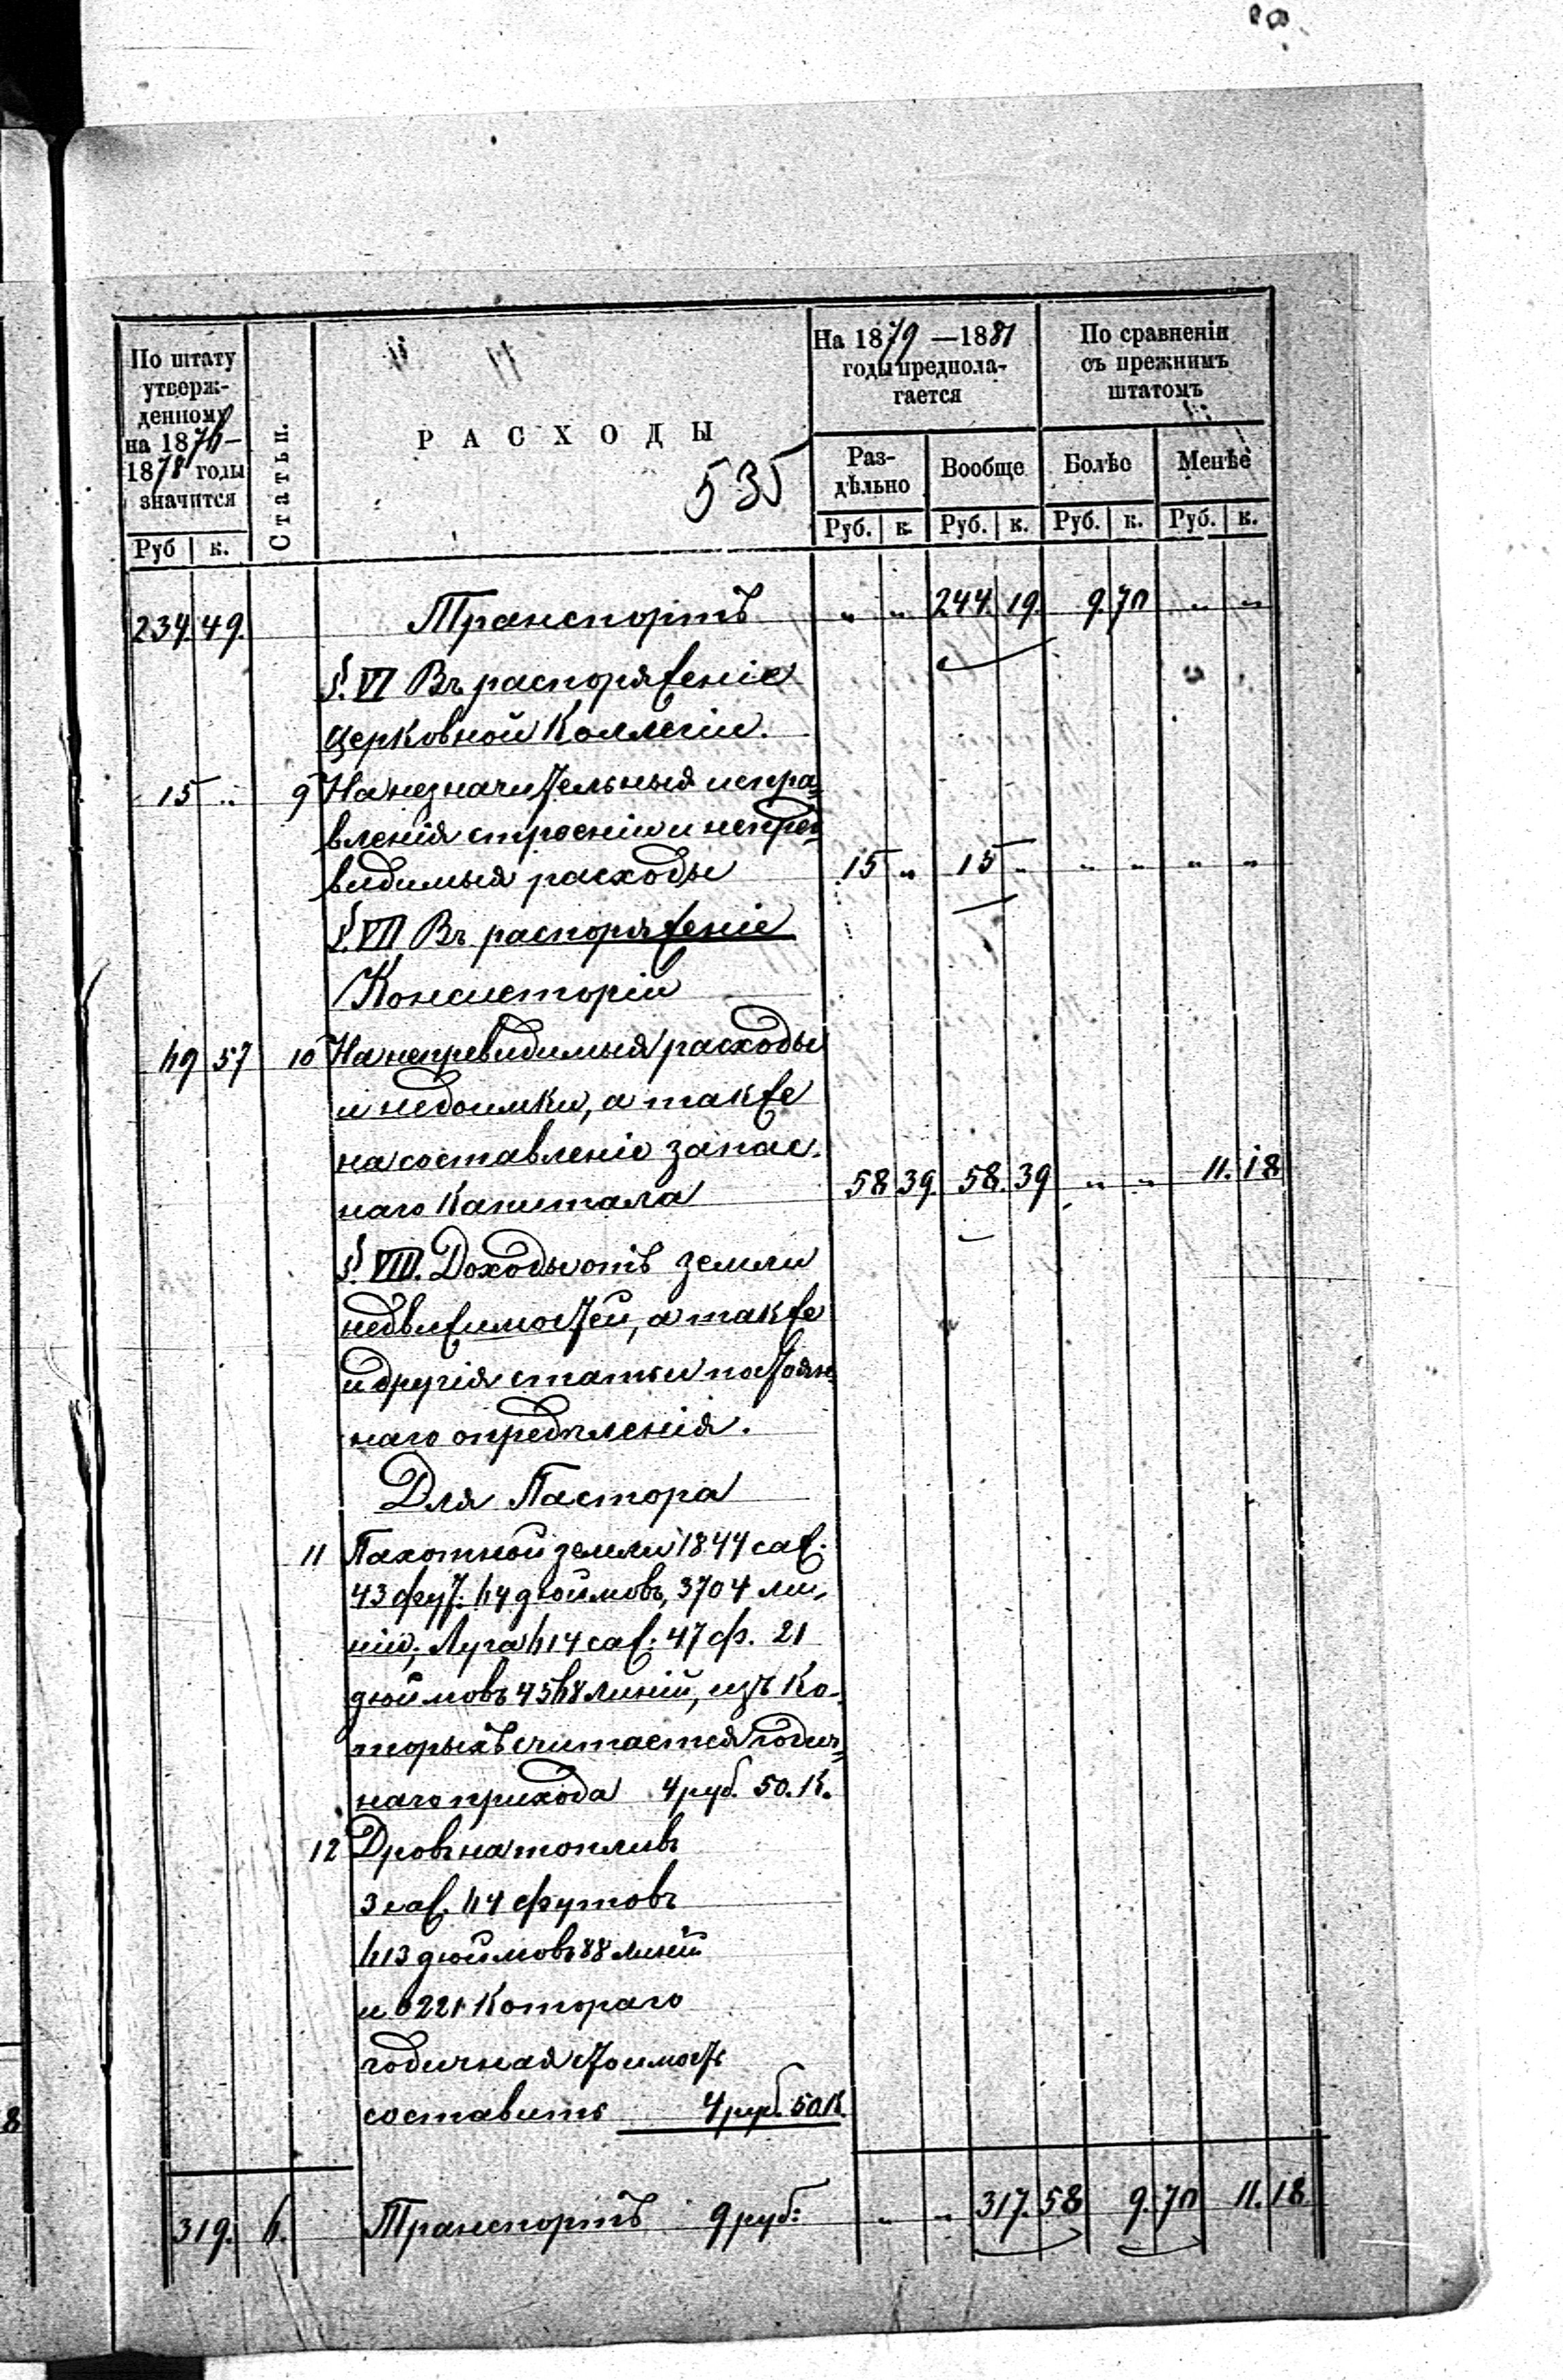 По штату
утверж-
денному
на 1876-
1878 годы
значится
Руб к.
Статьи.
РАСХОДЫ
535
На 1879 —1881
годы предпола-
гается
Раз-
дѣльно
Вообще
Руб. к. Руб. к.
По сравненіи
съ прежнимъ
штатомъ
Болѣе
Менѣе
Руб. к. Руб. к.
234. 49. Транспортъ " " 244. 19. 9. 70 " "
§. VI Въ распоряженіе
Церковной Коллегіи.
15 " 9 На незначительныя испра=
вленія строеніи и непред=
видимыя расходы 15 " 15 " " " " "
§. VII Въ распоряженіе
Консисторіи
69 57 10 На непревидимыя расходы
и недоимки, а также
на составленіе запас-
наго Капитала 58 39. 58. 39 " " 11. 18
§. VIII. Доходы отъ земли
недвижимостей, а также
и другія статьи постоян=
наго опредѣленія.
Для Пастора
11 Пахотной земли 1844 саж.
43 фут. 64 дюймовъ, 3704 ли-
ній; Луга 614 саж: 47 ф. 21
дюймовъ 4568 линій, изъ Ко-
торыхъ считается годич=
наго прихода 4 руб. 50. К.
12 Дровъ на топливъ
3 саж. 64 футовъ
613 дюймовъ 88 линій
и 0221 Котораго
годичная стоимость
составитъ 4 руб. 50 К.
319. 6. Транспортъ 9 руб: " " 317. 58 9. 70 11. 18